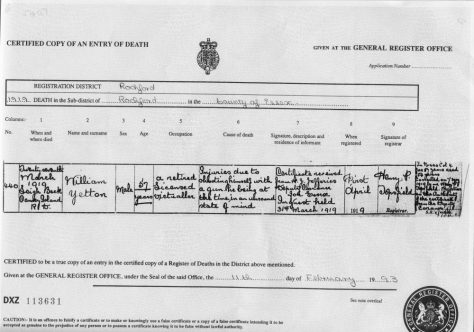 CERTIFIED COPY OF AN ENTRY OF DEATH
GIVEN AT THE GENERAL REGISTER OFFICE
Application Number
REGISTRATION DISTRICT Rochford
1919 DEATH in the Sub-district of Rochford in the County of Essex
Columns: 1 2 3 4 5 6 7 8 9
No. When and where died Name and surname Sex Age Occupation Cause of death Signature, description and residence of informant When registered Signature of registrar
440 March 1919 Leigh Beck Canvey Island R.D.
William Yetton
Male
57 years
a retired Licensed Victualler
Injuries due to shooting himself with a gun he being at the time in an unsound state of mind
Certificate received from J. Jefferies Deputy Coroner for Essex Inquest held 31st March 1919
First April 1919
Henry Registrar.
CERTIFIED to be a true copy of an entry in the certified copy of a Register of Deaths in the District above mentioned.
Given at the GENERAL REGISTER OFFICE, under the Seal of the said Office, the 11th day of February 19 93
DXZ 113631
See note overleaf
CAUTION:- It is an offence to falsify a certificate or to make or knowingly use a false certificate or a copy of a false certificate intending it to be
accepted as genuine to the prejudice of any person or to possess a certificate knowing it to be false without lawful authority.
GENERAL REGISTER OFFICE